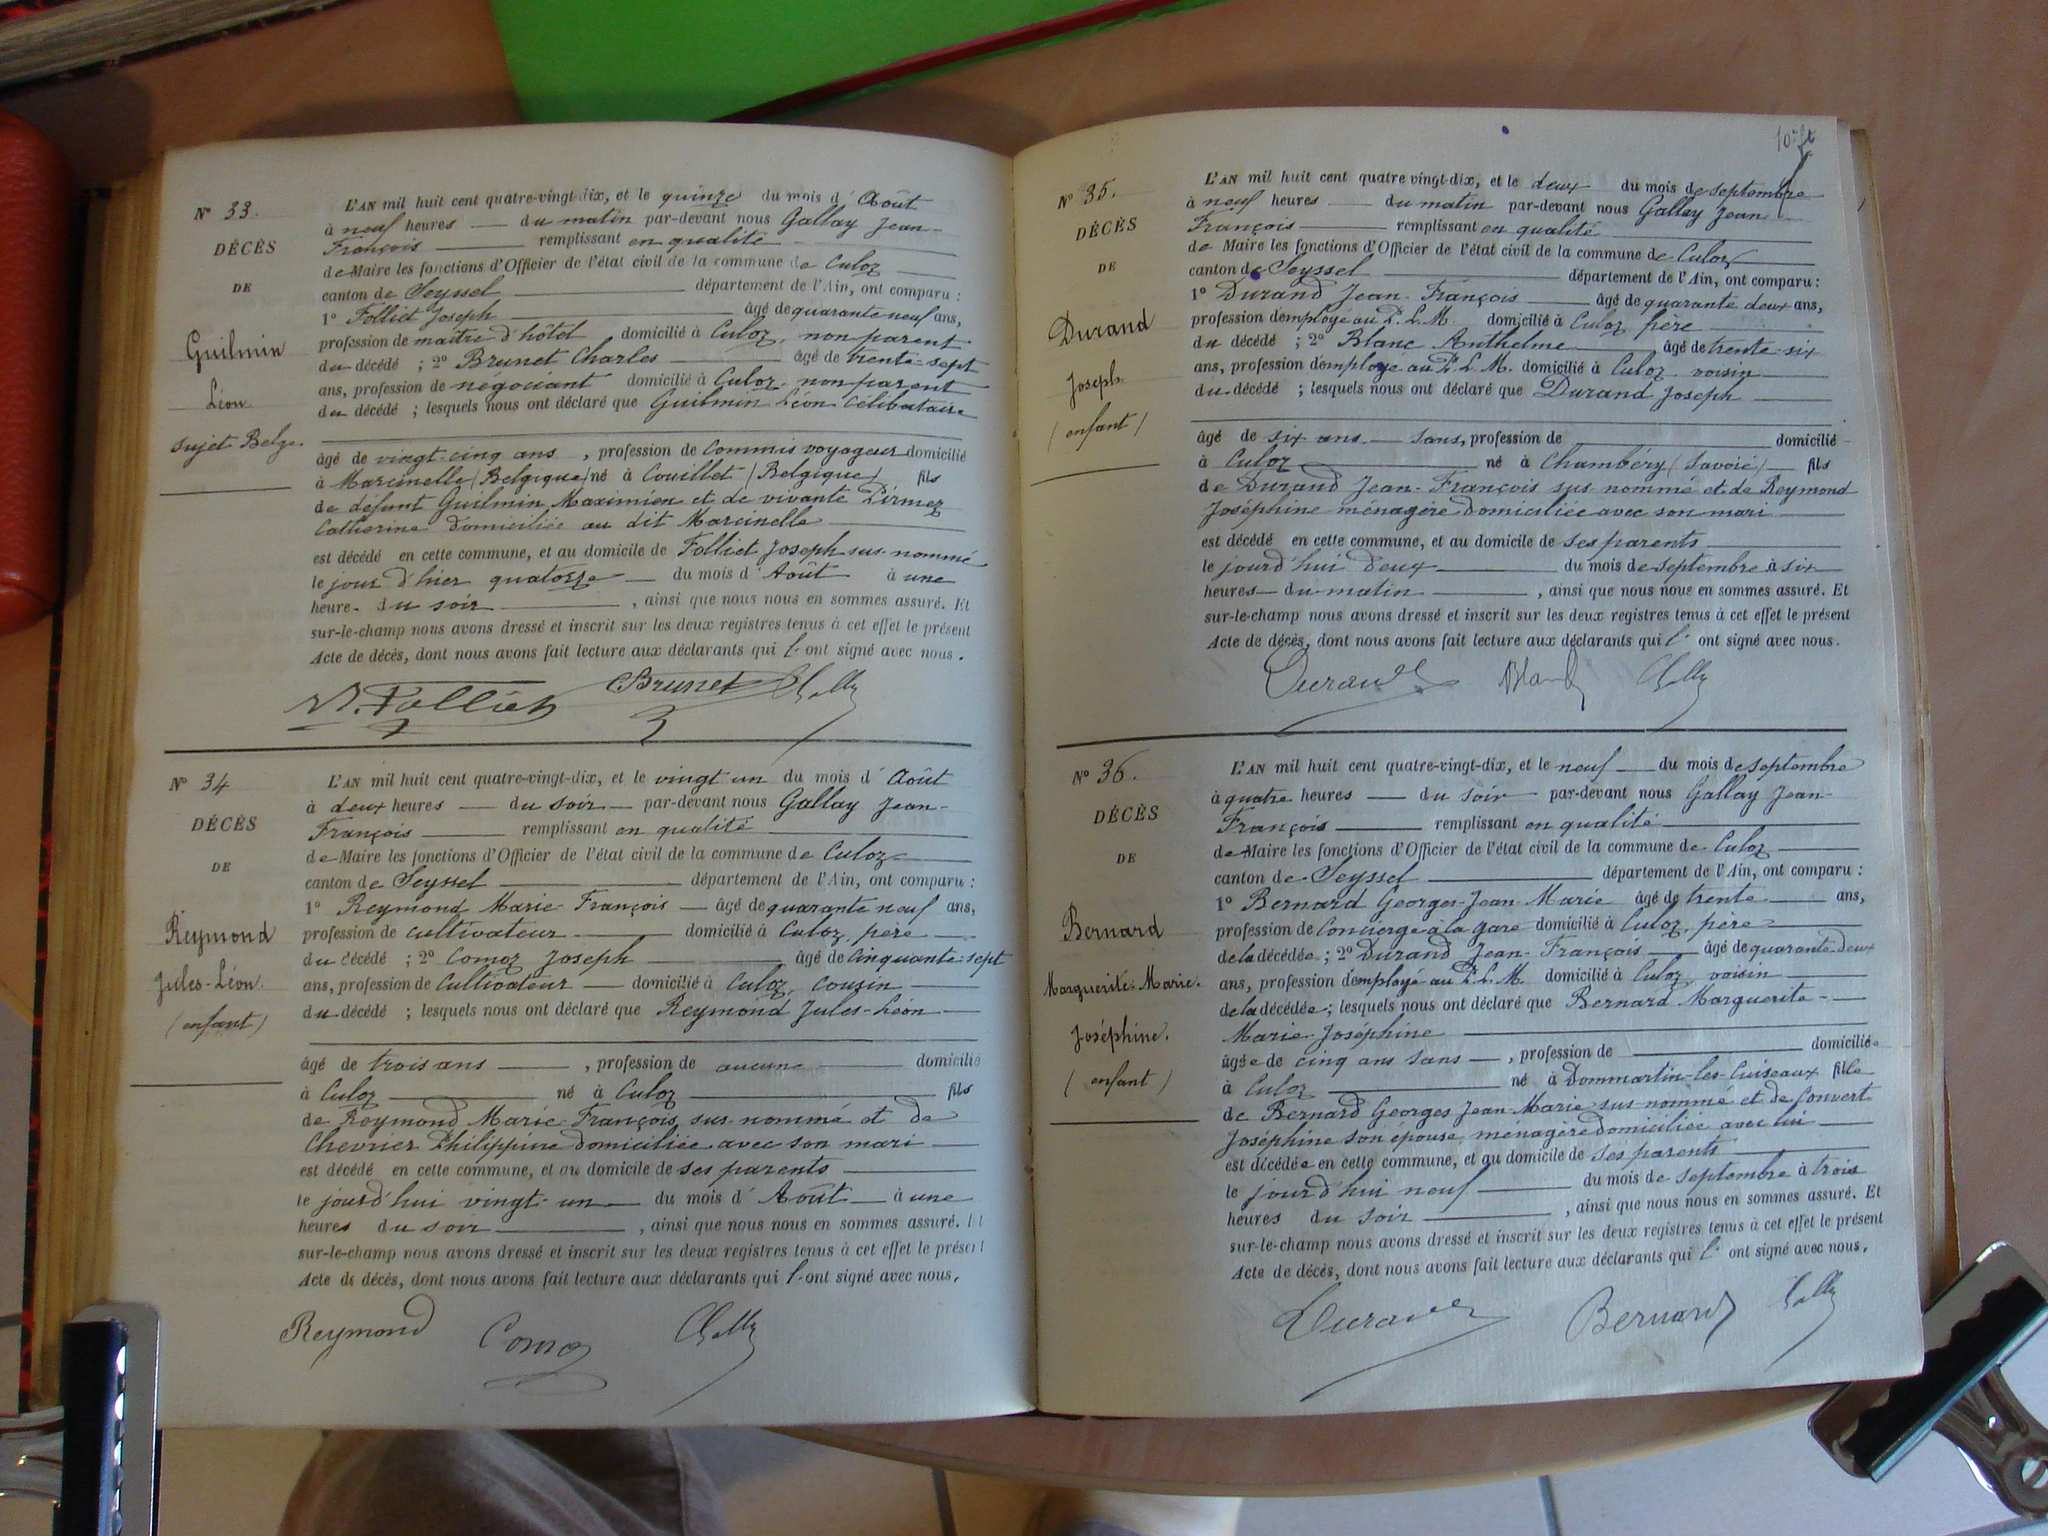 N° 33.
DÉCÈS
DE
Guilmin
Léon
sujet Belge.
L'AN mil huit cent quatre-vingt-dix, et le quinze du mois d'Août
à neuf heures du matin par-devant nous Gallay Jean-
François remplissant en qualité
de Maire les fonctions d'Officier de l'état civil de la commune de Culoz
canton de Seyssel département de l'Ain, ont comparu :
1° Folliet Joseph âgé de quarante neuf ans,
profession de maître d'hôtel domicilié à Culoz, non parent
du décédé ; 2° Brunet Charles âgé de trente-sept
ans, profession de négociant domicilié à Culoz non parent
du décédé ; lesquels nous ont déclaré que Guilmin Léon célibataire
âgé de vingt-cinq ans, profession de commis voyageur domicilié
à Marcinelle (Belgique) né à Couillet (Belgique) fils
de défunt Guilmin Maximien et de vivante Pirmez
Catherine domiciliée au dit Marcinelle
est décédé en cette commune, et au domicile de Folliet Joseph sus-nommé
le jour d'hier quatorze du mois d'Août à une
heure du soir, ainsi que nous nous en sommes assuré. Et
sur-le-champ nous avons dressé et inscrit sur les deux registres tenus à cet effet le présent
Acte de décès, dont nous avons fait lecture aux déclarants qui l'ont signé avec nous.
Folliet CBrunet Gally
N° 34
DÉCÈS
DE
Reymond
Jules-Léon.
(enfant)
L'AN mil huit cent quatre-vingt-dix, et le vingt un du mois d'Août
à deux heures du soir par-devant nous Gallay Jean-
François remplissant en qualité
de Maire les fonctions d'Officier de l'état civil de la commune de Culoz
canton de Seyssel département de l'Ain, ont comparu :
1° Reymond Marie-François âgé de quarante neuf ans,
profession de cultivateur domicilié à Culoz, père
du décédé ; 2° Comoz Joseph âgé de cinquante-sept
ans, profession de Cultivateur domicilié à Culoz, cousin
du décédé ; lesquels nous ont déclaré que Reymond Jules-Léon
âgé de trois ans, profession de aucune domicilié
à Culoz né à Culoz fils
de Reymond Marie-François sus-nommé et de
Chevrier Philippine domiciliée avec son mari
est décédé en cette commune, et au domicile de ses parents
le jourd'hui vingt-un du mois d'Août à une
heures du soir, ainsi que nous nous en sommes assuré. Et
sur-le-champ nous avons dressé et inscrit sur les deux registres tenus à cet effet le présent
Acte de décès, dont nous avons fait lecture aux déclarants qui l'ont signé avec nous.
Reymond Comoz Gally
N° 35.
DÉCÈS
DE
Durand
Joseph
(enfant)
L'AN mil huit cent quatre-vingt-dix, et le deux du mois de septembre
à neuf heures du matin par-devant nous Gallay Jean
François remplissant en qualité
de Maire les fonctions d'Officier de l'état civil de la commune de Culoz
canton de Seyssel département de l'Ain, ont comparu :
1° Durand Jean-François âgé de quarante deux ans,
profession d'employé au P.L.M. domicilié à Culoz père
du décédé ; 2° Blanc Anthelme âgé de trente-six
ans, profession d'employé au P.L.M. domicilié à Culoz voisin
du décédé ; lesquels nous ont déclaré que Durand Joseph
âgé de six ans sans, profession de domicilié
à Culoz né à Chambéry (Savoie) fils
de Durand Jean-François sus-nommé et de Reymond
Joséphine ménagère domiciliée avec son mari
est décédé en cette commune, et au domicile de ses parents
le jourd'hui deux du mois de septembre à six
heures du matin, ainsi que nous nous en sommes assuré. Et
sur-le-champ nous avons dressé et inscrit sur les deux registres tenus à cet effet le présent
Acte de décès, dont nous avons fait lecture aux déclarants qui l'ont signé avec nous.
Durand Blanc Gally
N° 36.
DÉCÈS
DE
Bernard
Marguerite-Marie.
Joséphine.
(enfant)
L'AN mil huit cent quatre-vingt-dix, et le neuf du mois de septembre
à quatre heures du soir par-devant nous Gallay Jean-
François remplissant en qualité
de Maire les fonctions d'Officier de l'état civil de la commune de Culoz
canton de Seyssel département de l'Ain, ont comparu :
1° Bernard Georges-Jean-Marie âgé de trente ans,
profession de Concierge à la gare domicilié à Culoz, père
de la décédée ; 2° Durand Jean-François âgé de quarante-deux
ans, profession d'employé au P.L.M. domicilié à Culoz voisin
de la décédée ; lesquels nous ont déclaré que Bernard Marguerite-
Marie-Joséphine
âgée de cinq ans sans, profession de domiciliée
à Culoz né à Dommartin-les-Cuiseaux fille
de Bernard Georges Jean-Marie sus-nommé et de Convert
Joséphine son épouse, ménagère domiciliée avec lui
est décédée en cette commune, et au domicile de ses parents
le jourd'hui neuf du mois de septembre à trois
heures du soir, ainsi que nous nous en sommes assuré. Et
sur-le-champ nous avons dressé et inscrit sur les deux registres tenus à cet effet le présent
Acte de décès, dont nous avons fait lecture aux déclarants qui l'ont signé avec nous.
Durand Bernard Gally